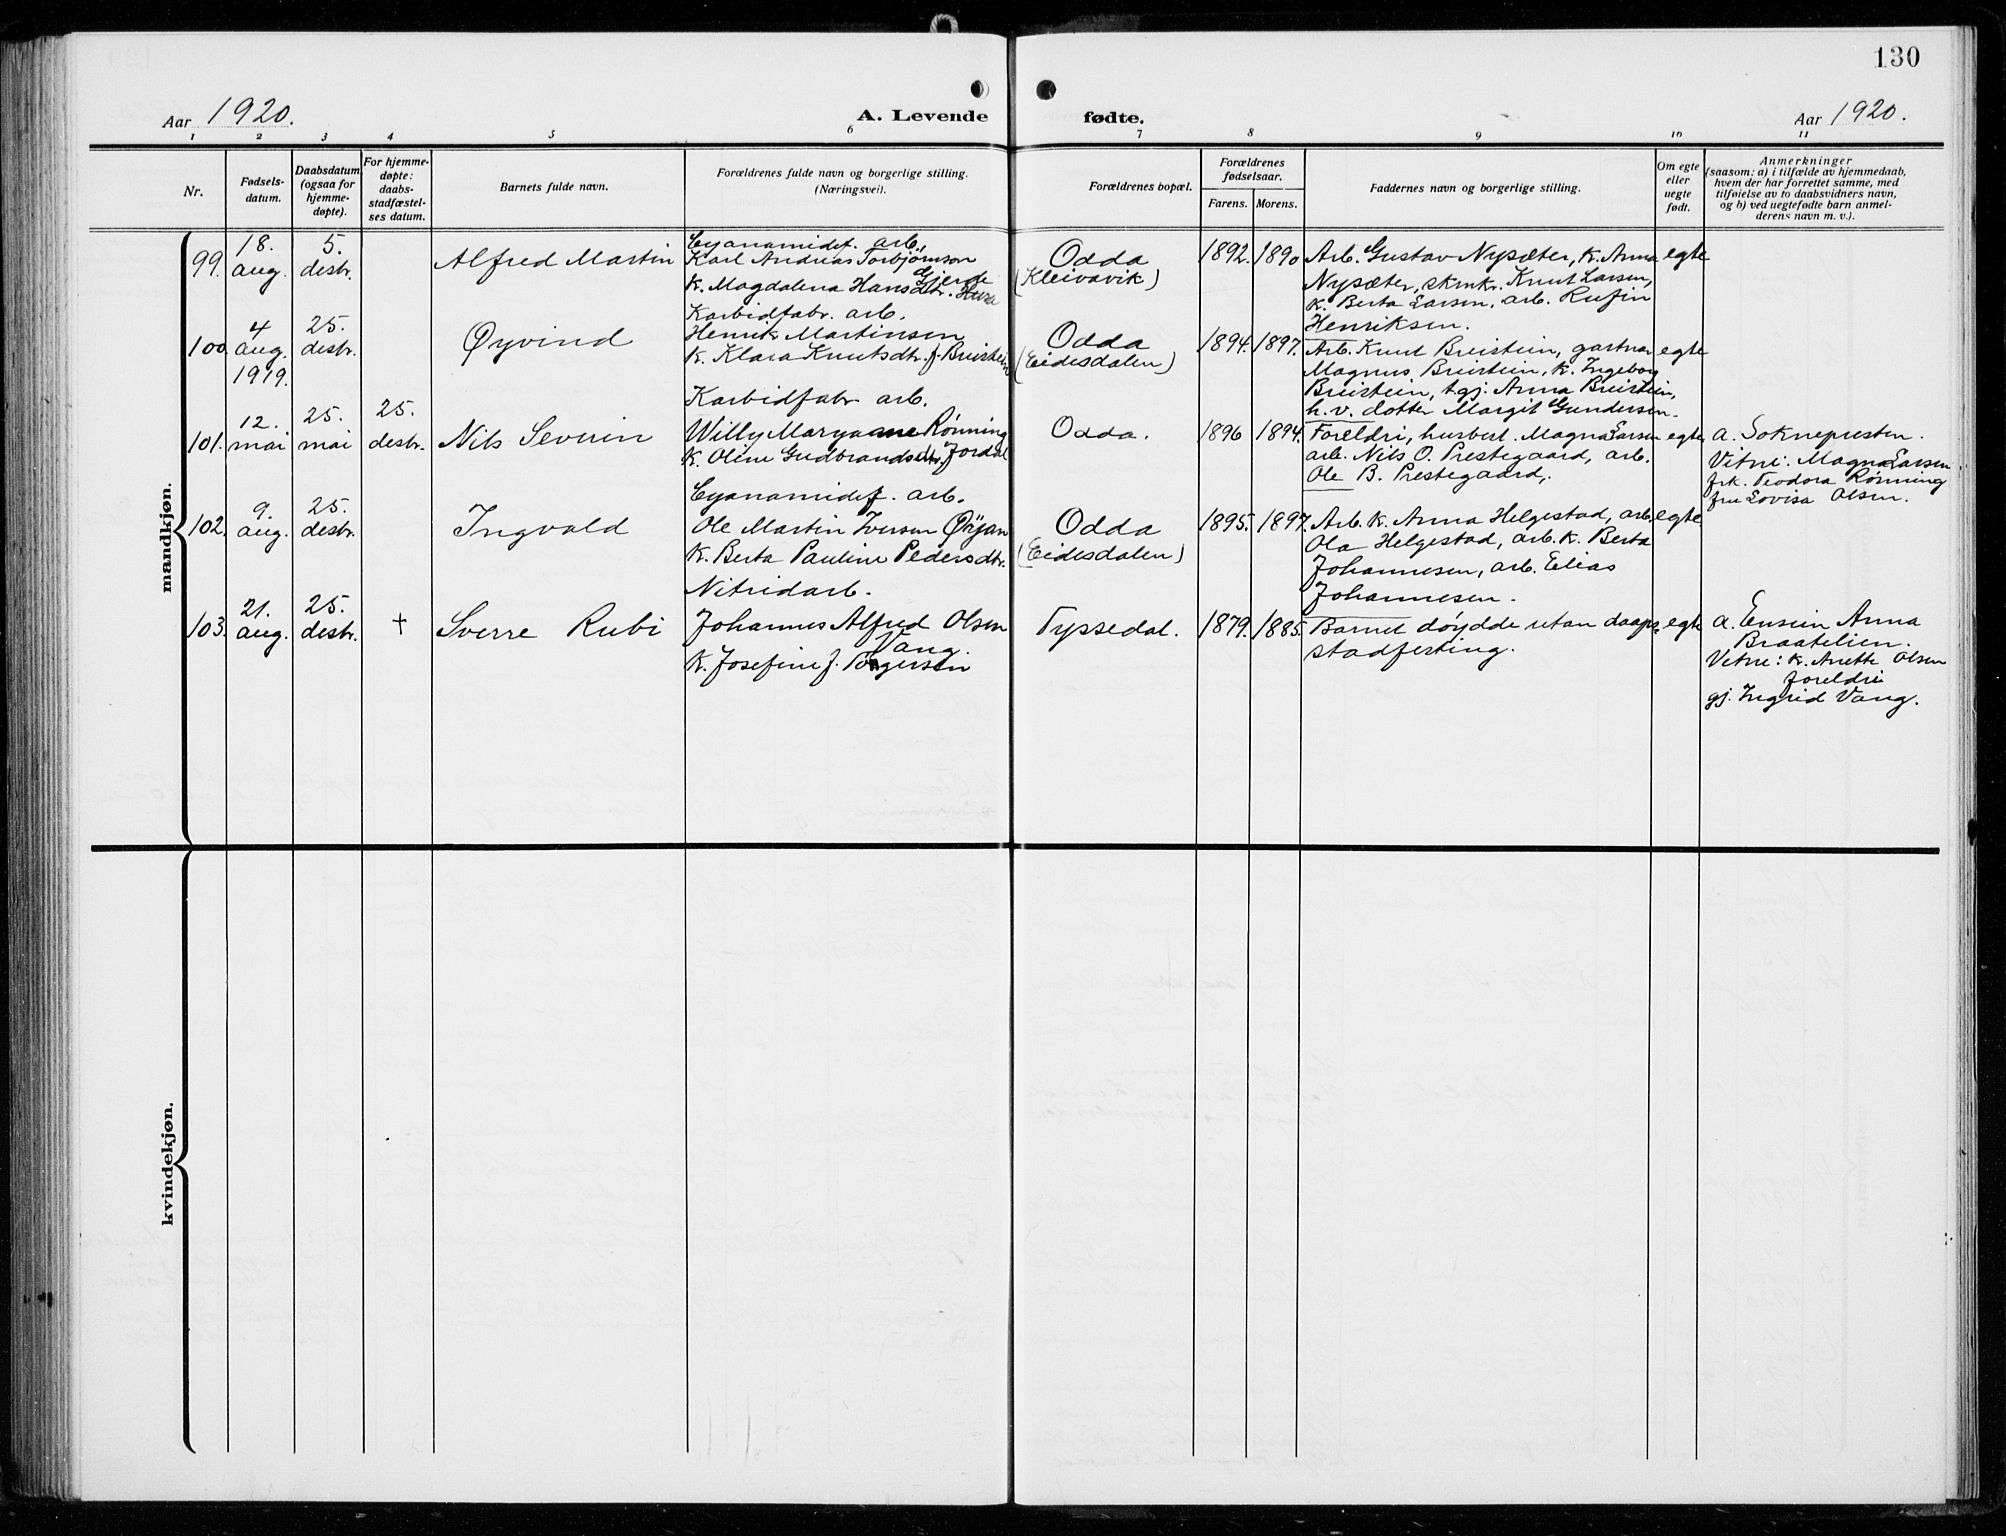 130
Aar 1920.
A. Levende fødte.
Aar 1920.
1 2 3 4 5 6 7 8 9 10 11
Nr.
Fødsels-
datum.
Daabsdatum
(ogsaa for
hjemme-
døpte).
For hjemme-
døpte:
daabs-
stadfæstel-
ses datum.
Barnets fulde navn.
Forældrenes fulde navn og borgerlige stilling.
(Næringsvei).
Forældrenes bopæl.
Forældrenes
fødselsaar.
Farens. Morens.
Faddernes navn og borgerlige stilling.
Om egte
eller
uegte
født.
Anmerkninger
(saasom: a) i tilfælde av hjemmedaab,
hvem der har forrettet samme, med
tilføielse av to daabsvidners navn,
og b) ved uegtefødte barn anmel-
derens navn m. v.).
mandkjøn.
99.
18.
aug.
5.
desbr.
Alfred Martin
Cyanamidef. arb.
Karl Andreas Torbjørnson
Gjerde
K. Magdalena Hansdtr. Husa
Odda
(Kleivavik)
1892. 1890
Arb. Gustav Nysæter, K. Anna
Nysæter, skmkr. Knut Larsen,
K. Berta Larsen, arb. Rufin
Henriksen.
egte
100.
4
aug.
1919.
25.
desbr.
Øyvind
Karbidfabr. arb.
Henrik Martinsen
K. Klara Knutsdtr. f. Breistein
Odda
(Eidesdalen)
1894. 1897.
Arb. Knut Breistein, gartnar
Magnus Breistein, K. Ingeborg
Breistein, tgj. Anna Breistein,
h.v. dotter Margit Gundersen.
egte
101.
12.
mai
25.
mai
25.
desbr.
Nils Severin
Karbidfabr. arb.
Willy Rønning
K. Oline Gudbrandsdtr. f. Jordal
Odda.
1896 1894.
Foreldri, husbest. Magna Larsen
arb. Nils O. Prestegaard, arb.
Ole B. Prestegaard.
egte
a. Soknepresten.
Vitne: Magna Larsen
frk. Teodora Rønning
fru Lovisa Olsen.
102.
9.
aug.
25.
desbr.
Ingvald
Cyanamidef. arb.
Ole Martin Iversen Øijan
K. Berta Pauline Pedersdtr.
Odda
(Eidesdalen)
1895. 1897.
Arb. K. Anna Helgestad, arb.
Ola Helgestad, arb. K. Berta
Johannesen, arb. Elias
Johannesen.
egte
103.
21.
aug.
25.
desbr.
†
Sverre Rubi
Nitridarb.
Johannes Alfred Olsen
Vang.
K. Josefine f. Torgersen
Tyssedal.
1879. 1885.
Barnet døydde utan daaps-
stadfesting.
egte
a. Anna
Braatelien.
Vitne: K. Anette Olsen
foreldri
gj. Ingrid Vang.
kvindekjøn.